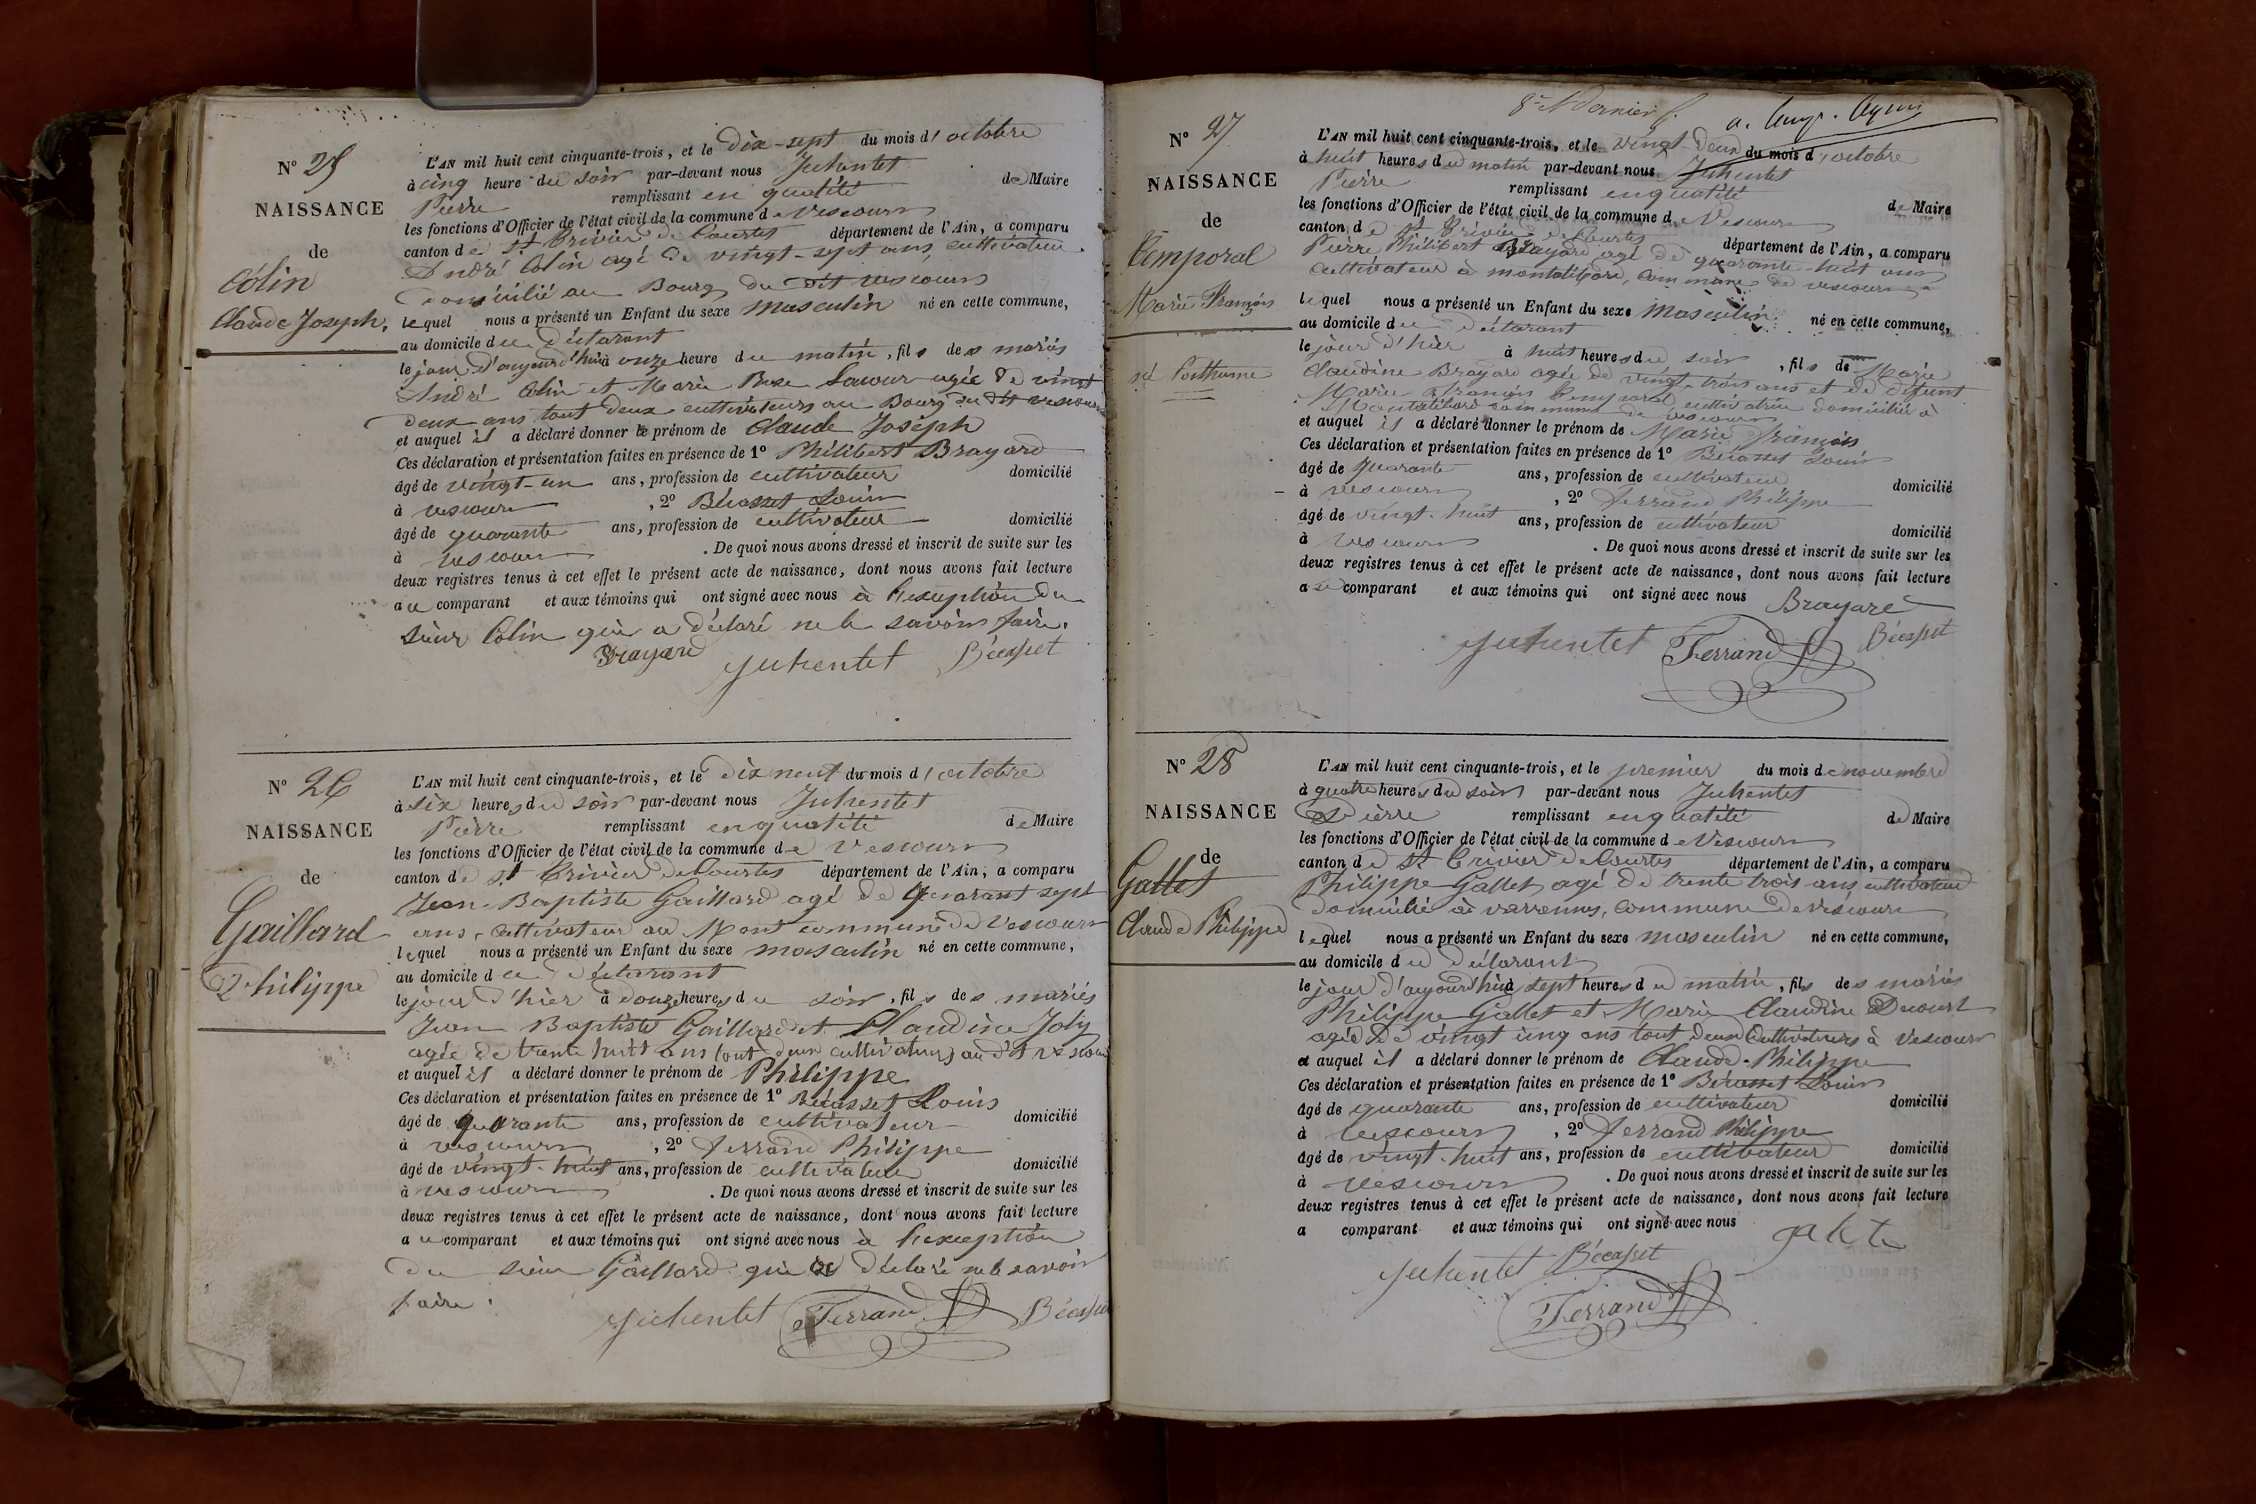 N° 25
NAISSANCE
de
Colin
Claude Joseph,
L'AN mil huit cent cinquante-trois, et le Dix-sept du mois d'octobre
à cinq heure du soir par-devant nous Juhentet
Pierre remplissant en qualité de Maire
les fonctions d'Officier de l'état civil de la commune de Vescours
canton de St Trivier de Courtes département de l'Ain, a comparu
André Colin agé de vingt-sept ans, cultivateur
domicilié au Bourg du dit vescours
lequel nous a présenté un Enfant du sexe masculin né en cette commune,
au domicile du déclarant
le jour d'aujourd'hui à onze heure du matin, fils des mariés
André Colin et Marie Rose agée de vingt
deux ans tout deux cultivateurs au Bourg du dit vescours
et auquel il a déclaré donner le prénom de Claude Joseph
Ces déclaration et présentation faites en présence de 1° Philibert Brayard
âgé de vingt-un ans, profession de cultivateur domicilié
à vescours, 2° Bécasset Louis
âgé de quarante ans, profession de cultivateur domicilié
à vescours. De quoi nous avons dressé et inscrit de suite sur les
deux registres tenus à cet effet le présent acte de naissance, dont nous avons fait lecture
au comparant et aux témoins qui ont signé avec nous à l'exception du
sieur Colin qui a déclaré ne le savoir faire.
Brayard Juhentet Bécasset
N° 26
NAISSANCE
de
Gaillard
Philippe
L'AN mil huit cent cinquante-trois, et le dix neuf du mois d'octobre
à six heures du soir par-devant nous Juhentet
Pierre remplissant en qualité de Maire
les fonctions d'Officier de l'état civil de la commune de Vescours
canton de St Trivier de Courtes département de l'Ain, a comparu
Jean-Baptiste Gaillard agé de quarant sept
ans, cultivateur au Mont commune de Vescours
lequel nous a présenté un Enfant du sexe masculin né en cette commune,
au domicile du déclarant
le jour d'hier à douze heures du soir, fils des mariés
Jean Baptiste Gaillard et Claudine Joly
agée de trente huit ans tout deux cultivateurs au dit vescours
et auquel il a déclaré donner le prénom de Philippe
Ces déclaration et présentation faites en présence de 1° Bécasset Louis
âgé de quarante ans, profession de cultivateur domicilié
à vescours, 2° Ferrand Philippe
âgé de vingt-huit ans, profession de cultivateur domicilié
à vescours. De quoi nous avons dressé et inscrit de suite sur les
deux registres tenus à cet effet le présent acte de naissance, dont nous avons fait lecture
au comparant et aux témoins qui ont signé avec nous à l'exception
du sieur Gaillard qui a déclaré ne le savoir
faire.
Juhentet Ferrand Bécasset
8e et dernier f.
N° 27
NAISSANCE
de
Temporal
Marie François
né Posthume
L'AN mil huit cent cinquante-trois, et le vingt-deux du mois d'octobre
à huit heures du matin par-devant nous Juhentet
Pierre remplissant en qualité de Maire
les fonctions d'Officier de l'état civil de la commune de Vescours
canton de St Trivier de Courtes département de l'Ain, a comparu
Pierre Philibert Brayard agé de quarante-huit ans
cultivateur à montalibord, commune de vescours
lequel nous a présenté un Enfant du sexe masculin né en cette commune,
au domicile du déclarant
le jour d'hier à huit heures du soir, fils de Marie
Claudine Brayard agée de vingt-trois ans et de défunt
Marie François Temporal cultivatrice domicilié à
Montalibord commune de vescours
et auquel il a déclaré donner le prénom de Marie François
Ces déclaration et présentation faites en présence de 1° Bécasset Louis
âgé de quarante ans, profession de cultivateur domicilié
à vescours, 2° Ferrand Philippe
âgé de vingt-huit ans, profession de cultivateur domicilié
à vescours. De quoi nous avons dressé et inscrit de suite sur les
deux registres tenus à cet effet le présent acte de naissance, dont nous avons fait lecture
au comparant et aux témoins qui ont signé avec nous Brayard
Juhentet Ferrand Bécasset
N° 28
NAISSANCE
de
Gallet
Claude Philippe
L'AN mil huit cent cinquante-trois, et le premier du mois de novembre
à quatre heures du soir par-devant nous Juhentet
Pierre remplissant en qualité de Maire
les fonctions d'Officier de l'état civil de la commune de Vescours
canton de St Trivier de Courtes département de l'Ain, a comparu
Philippe Gallet agé de trente trois ans, cultivateur
domicilié à varennes, commune de vescours
lequel nous a présenté un Enfant du sexe masculin né en cette commune,
au domicile du déclarant
le jour d'aujourd'hui à sept heures du matin, fils des mariés
Philippe Gallet et Marie Claudine Decourt
agée de vingt cinq ans tout deux cultivateurs à Vescours
et auquel il a déclaré donner le prénom de Claude-Philippe
Ces déclaration et présentation faites en présence de 1° Bécasset Louis
âgé de quarante ans, profession de cultivateur domicilié
à vescours, 2° Ferrand Philippe
âgé de vingt-huit ans, profession de cultivateur domicilié
à vescours. De quoi nous avons dressé et inscrit de suite sur les
deux registres tenus à cet effet le présent acte de naissance, dont nous avons fait lecture
a comparant et aux témoins qui ont signé avec nous
Juhentet Bécasset
Ferrand